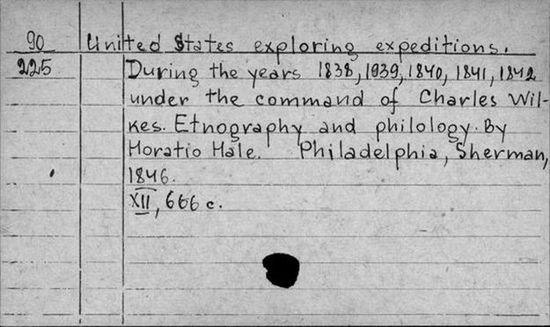 90 United States exploring expeditions.
225 During the years 1838, 1939, 1840, 1841, 1842
under the command of Charles Wil-
kes. Etnography and philology. By
Horatio Hale. Philadelphia, Sherman,
1846.
XII, 666 c.